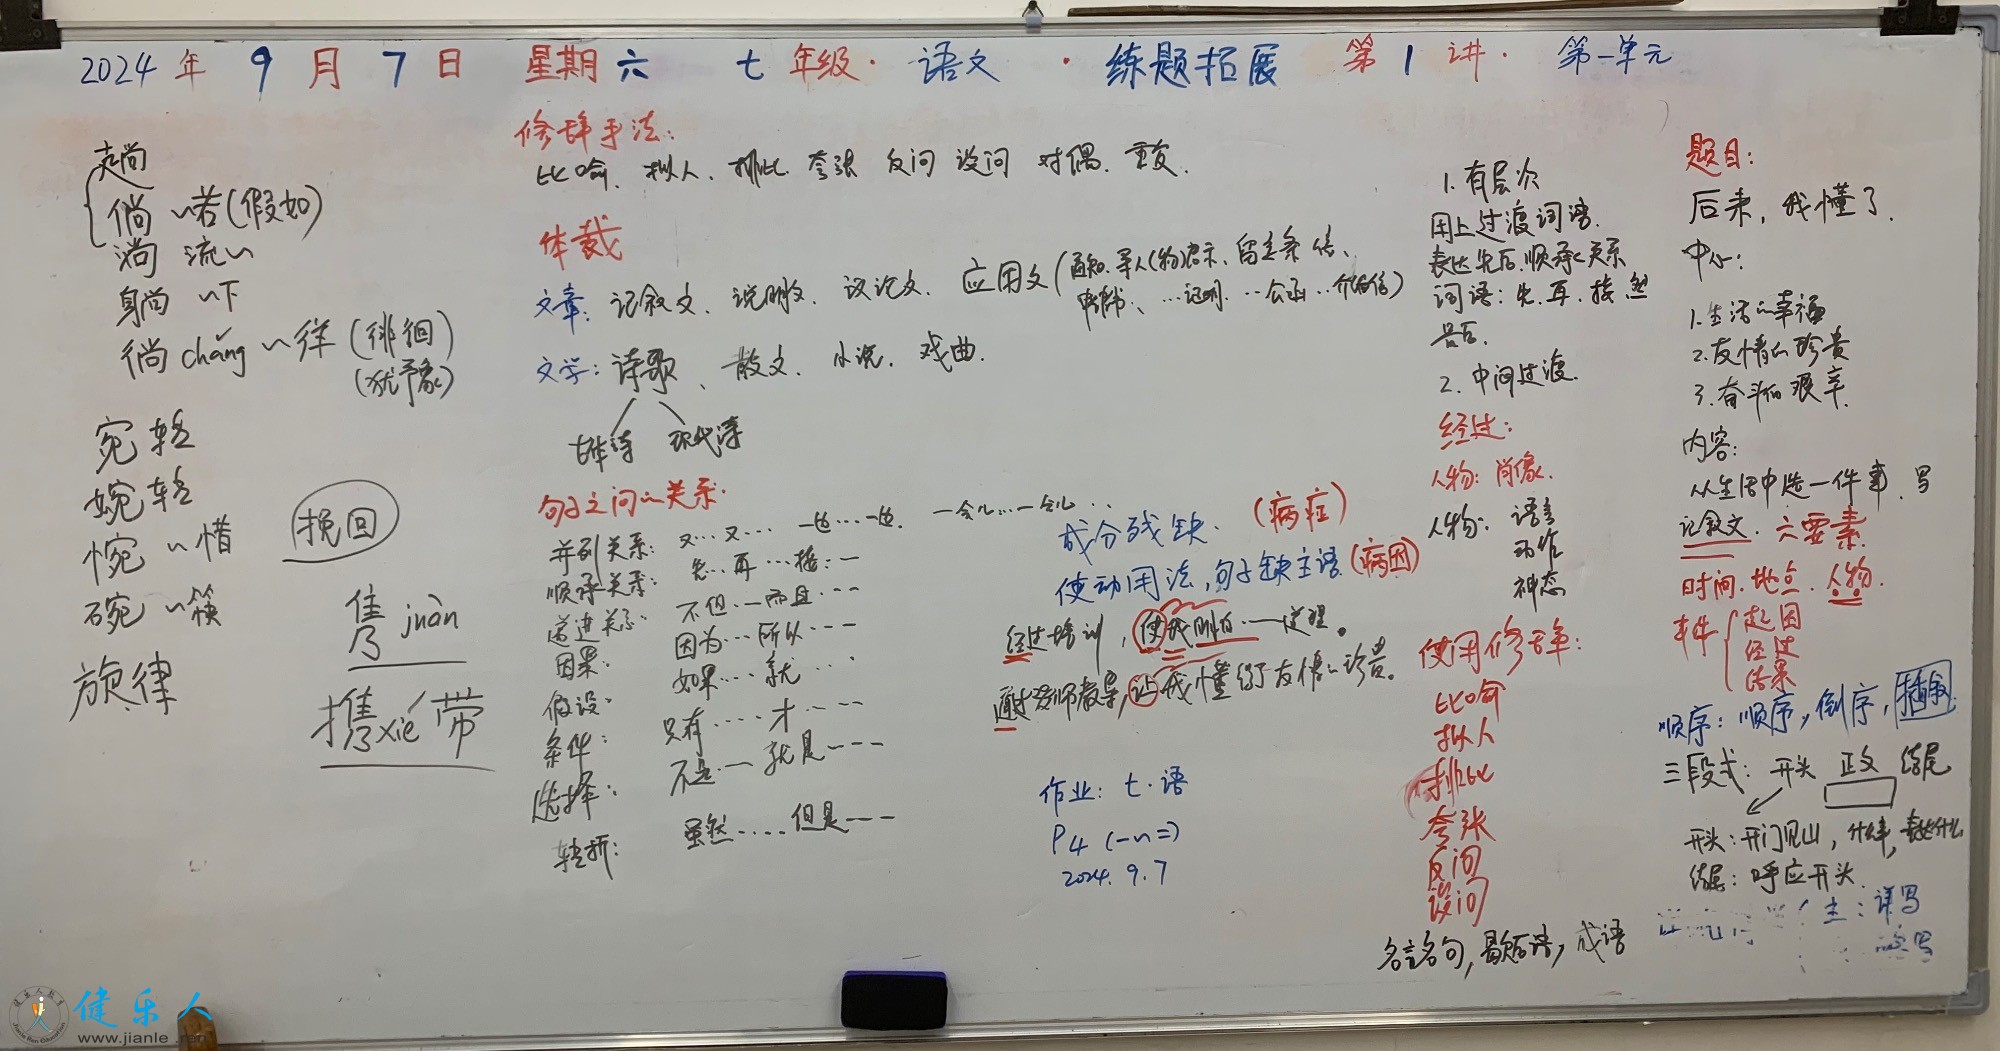 2024年9月7日 星期六 七年级·语文·练题拓展 第1讲·第一单元
趟
倘 ~若(假如)
淌 流~
躺 ~下
徜 cháng ~徉 (徘徊)
(犹豫)
宛转
婉转
惋 ~惜
碗 ~筷
旋律
挽回
隽 juàn
携 xié 带
修辞手法:
比喻、拟人、排比、夸张 反问 设问 对偶、重复.
体裁
文章: 记叙文、说明文、议论文、应用文(通知、寻人(物)启示、留言条 信、
申请书、…证明、…公函…介绍信)
文学: 诗歌、散文、小说、戏曲.
古体诗 现代诗
句子之间的关系.
并列关系: 又…又… 一边…一边. 一会儿…一会儿…
顺承关系: 先…再…接…
递进关系: 不但…而且…
因果: 因为…所以…
假设: 如果…就…
条件: 只有…才…
选择: 不是…就是…
转折: 虽然…但是…
成分残缺. (病症)
使动用法,句子缺主语 (病因)
经过培训,使我明白……道理。
通过老师教导,让我懂得了友情的珍贵。
作业: 七·语
P4 (一~二)
2024.9.7
1.有层次
用上过渡词语.
表达先后、顺承关系
词语:先、再、接、然
最后.
2.中间过渡.
经过:
人物: 肖像.
人物: 语言
动作
神态
使用修辞:
比喻
拟人
排比
夸张
反问
设问
名言名句,歇后语,成语
题目:
后来,我懂了.
中心:
1.生活的幸福
2.友情的珍贵
3.奋斗的艰辛.
内容:
从生活中选一件事、写
记叙文. 六要素.
时间、地点、人物.
事件 起因
经过
结果
顺序: 顺序,倒序,插叙.
三段式: 开头 正文 结尾
开头: 开门见山,什么事,表达什么
结尾: 呼应开头.
主: 详写
写
健乐人
www.jianle